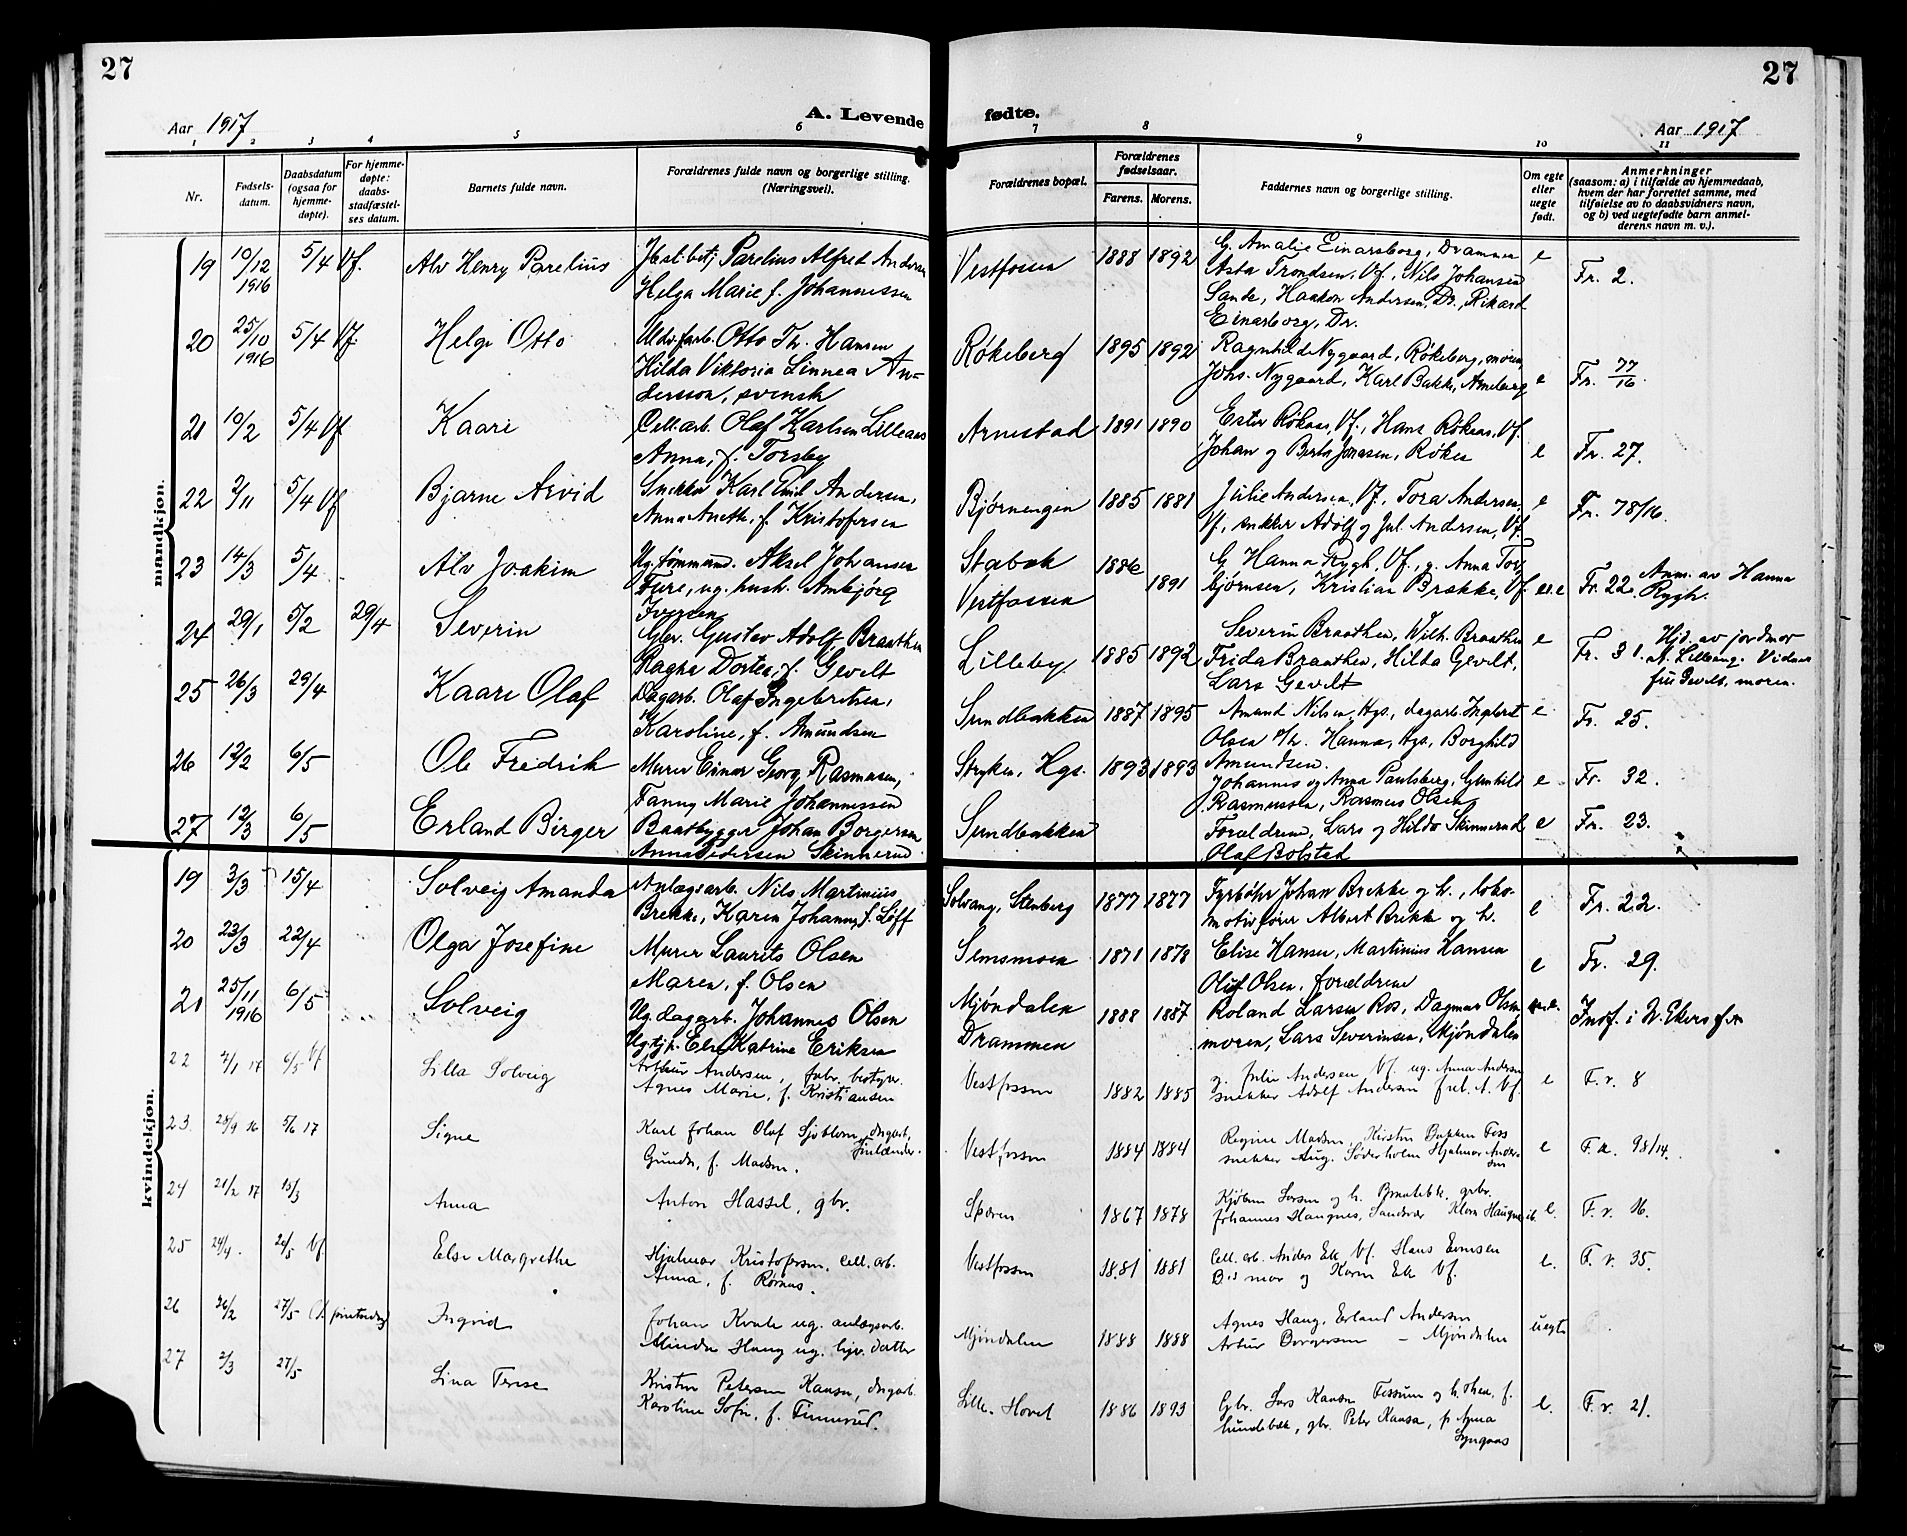 27
27
Aar 1917
A. Levende
fødte.
Aar 1917
1 2 3 4 5 6 7 8 9 10 11
Nr.
Fødsels-
datum.
Daabsdatum
(ogsaa for
hjemme-
døpte).
For hjemme-
døpte:
daabs-
stadfæstel-
ses datum.
Barnets fulde navn.
Forældrenes fulde navn og borgerlige stilling.
(Næringsvei).
Forældrenes bopæl.
Forældrenes
fødselsaar.
Farens. Morens.
Faddernes navn og borgerlige stilling.
Om egte
eller
uegte
født.
Anmerkninger
(saasom: a) i tilfælde av hjemmedaab,
hvem der har forrettet samme, med
tilføielse av to daabsvidners navn,
og b) ved uegtefødte barn anmel-
derens navn m. v.).
mandkjøn.
19 10/12 1916 5/4 Vf. Alv Henry Parelius
Parelius Alfred Andersen
Helga Marie f. Johannessen
Vestfossen 1888 1892
G. Amalie Einarsborg, Drammen
Asta Trondsen, Vf., Nils Johansen
Sande, Haakon Andersen, Dr., Rikard
Einarsborg, Dr.
e Fr. 2.
20 25/10 1916 5/4 Vf. Helge Otto
Otto Th. Hansen
Hilda Viktoria Linnea An-
dersson, svensk
Røkeberg 1895 1892
Ragnhild Nygaard, Røkeberg, moren,
Johs. Nygaard, Karl Bakke,
e Fr. 77/16.
21 10/2 5/4 Vf Kaare
Cell.arb. Olaf Karlsen Lilleaas
Anna, f. Torsby
Arnestad 1891 1890
Ester Røkaas, Vf., Hans Røkaas, Vf.
Johan og Berta Jonasen, Røkea
e Fr. 27.
22 5/4 Vf Bjarne Arvid
Snekker Karl Emil Andersen,
Anna Aneth. f. Kristofersen
Bjørnengen 1885 1881
Julie Andersen, Vf, Tora Andersen,
Vf, snekker Adolf og Jul. Andersen, Vf.
e Fr. 78/16.
23 14/3 5/4 Alv Joakim
Ug. tømmermd. Aksel Johansen
Fure, ug. hush. Ambjørg
Iversen
Stabæk
Vestfossen 1886 1891
G. Hanna Rygh, Vf., g. Anna Tor-
bjørnsen, Kristian Brække, Vf.
Fr. 22. Anm. av Hanna
Rygh.
24 29/1 5/2 29/4 Severin
Gustav Adolf Braathen
Ragna Dortea, f. Gevelt
Lilleby 1885 1892
Severin Braathen, Wilh. Braathen
Frida Braathen, Hilda Gevelt,
Lars Gevelt
e Fr. 31. Hjd. av jordmor
Vidner
fru Gevelt, moren.
25 26/3 29/4 Kaare Olaf
Dagarb. Olaf Ingebretsen,
Karoline, f. Amundsen
Sundbakken 1887 1895
Amund Nilsen, Hgs., dagarb. Ingebret
Olsen Hanna, Hgs., Borghild
Amundsen.
e. Fr. 25.
26 12/2 6/5 Ole Fredrik
Murer Einar Georg Rasmusen,
Fanny Marie Johannessen
Stryken, Hgs. 1893 1893
Johannes og Anna Paulsberg, Gunhild
Rasmussen, Rasmus Olsen
e Fr. 32.
27 12/3 6/5 Erland Birger
Baatbygger Johan Borgersen
Anna Pedersen Skinnerud
Sundbakken
Forældrene, Lars og Hilda Skinnerud
Olaf Bolstad
e Fr. 23.
kvindekjøn.
19 3/3 15/4 Solveig Amanda
Anlægsarb. Nils Martinius
Brekke, Karen Johanne, f. Løff
Solvang, Stenberg 1877 1877
Fyrbøter Johan Brekke og h., loko-
motivfører Albert Brekke og h.
e Fr. 22.
20 23/3 22/4 Olga Josefine
Murer Laurits Olsen
Maren, f. Olsen
Semsmoen 1871 1878
Elise Hansen, Martinius Hansen
Oluf Olsen, forældrene
e Fr. 29.
21 25/11 1916 6/5 Solveig
Ug. dagarb. Johannes Olsen
Ug. tj.p. Else Katrine Eriksen
Mjøndalen
Drammen 1888 1887
Roland Larsen Ros, Dagmar Olsen,
moren, Lars Severinsen, Mjøndalen
Indf. i N. Eker
22 4/1 17 6/5 Vf Lilla Solveig
Arthur Andersen, fabr. bestyr.
Agnes Marie, f. Kristiansen
Vestfossen 1882 1885
g. Julie Andersen Vf. ug. Anna Andersen
snekker Adolf Andersen Jul. A. Vf.
e F. r. 8
23 25/9 16 5/6 17 Signe
Karl Johan Olaf Sjöblom, dagarb.,
finlænder.
Gunda, f. Madsen.
Vestfossen 1884 1884
Regine Madsen, Kirsten Bakken Foss
snekker Aug. Söderholm Hjalmar Ander-
sen
e F. r. 98/14.
24 21/2 17 15/3 Anna
Anton Hassel, gbr.
Skaren 1867 1878
Johannes Haugnes, Sandsvær
e. F. r. 16.
25 24/4. 20/5 Vf. Else Margrethe
Hjalmar Kristofersen, cell. arb.
Anna, f. Rørnes.
Vestfossen 1881 1881
Cell. arb. Anders Ek Vf. Hans Evensen
og Karen Ek Vf.
e. F. r. 35.
26 26/2 27/5 Ingrid
Johan Kvale ug. anlægsarb.
Minda Haug ug. hjv. datter
Mjøndalen 1888 1888
Agnes Haug, Erland Andersen
Artur Borgersen – Mjøndalen
uegte
27 2/3 27/5 Lina Terese
Kristen Petersen Hansen, dagarb.
Karoline Sofie, f. Finnerud.
Lille-Hovet 1886 1893
Gbr. Lars Hansen Fossum og h. Thea, f.
Lundebæk, gbr. Peter Hansen, p. Agna
Lyngaas
e. F. r. 21.